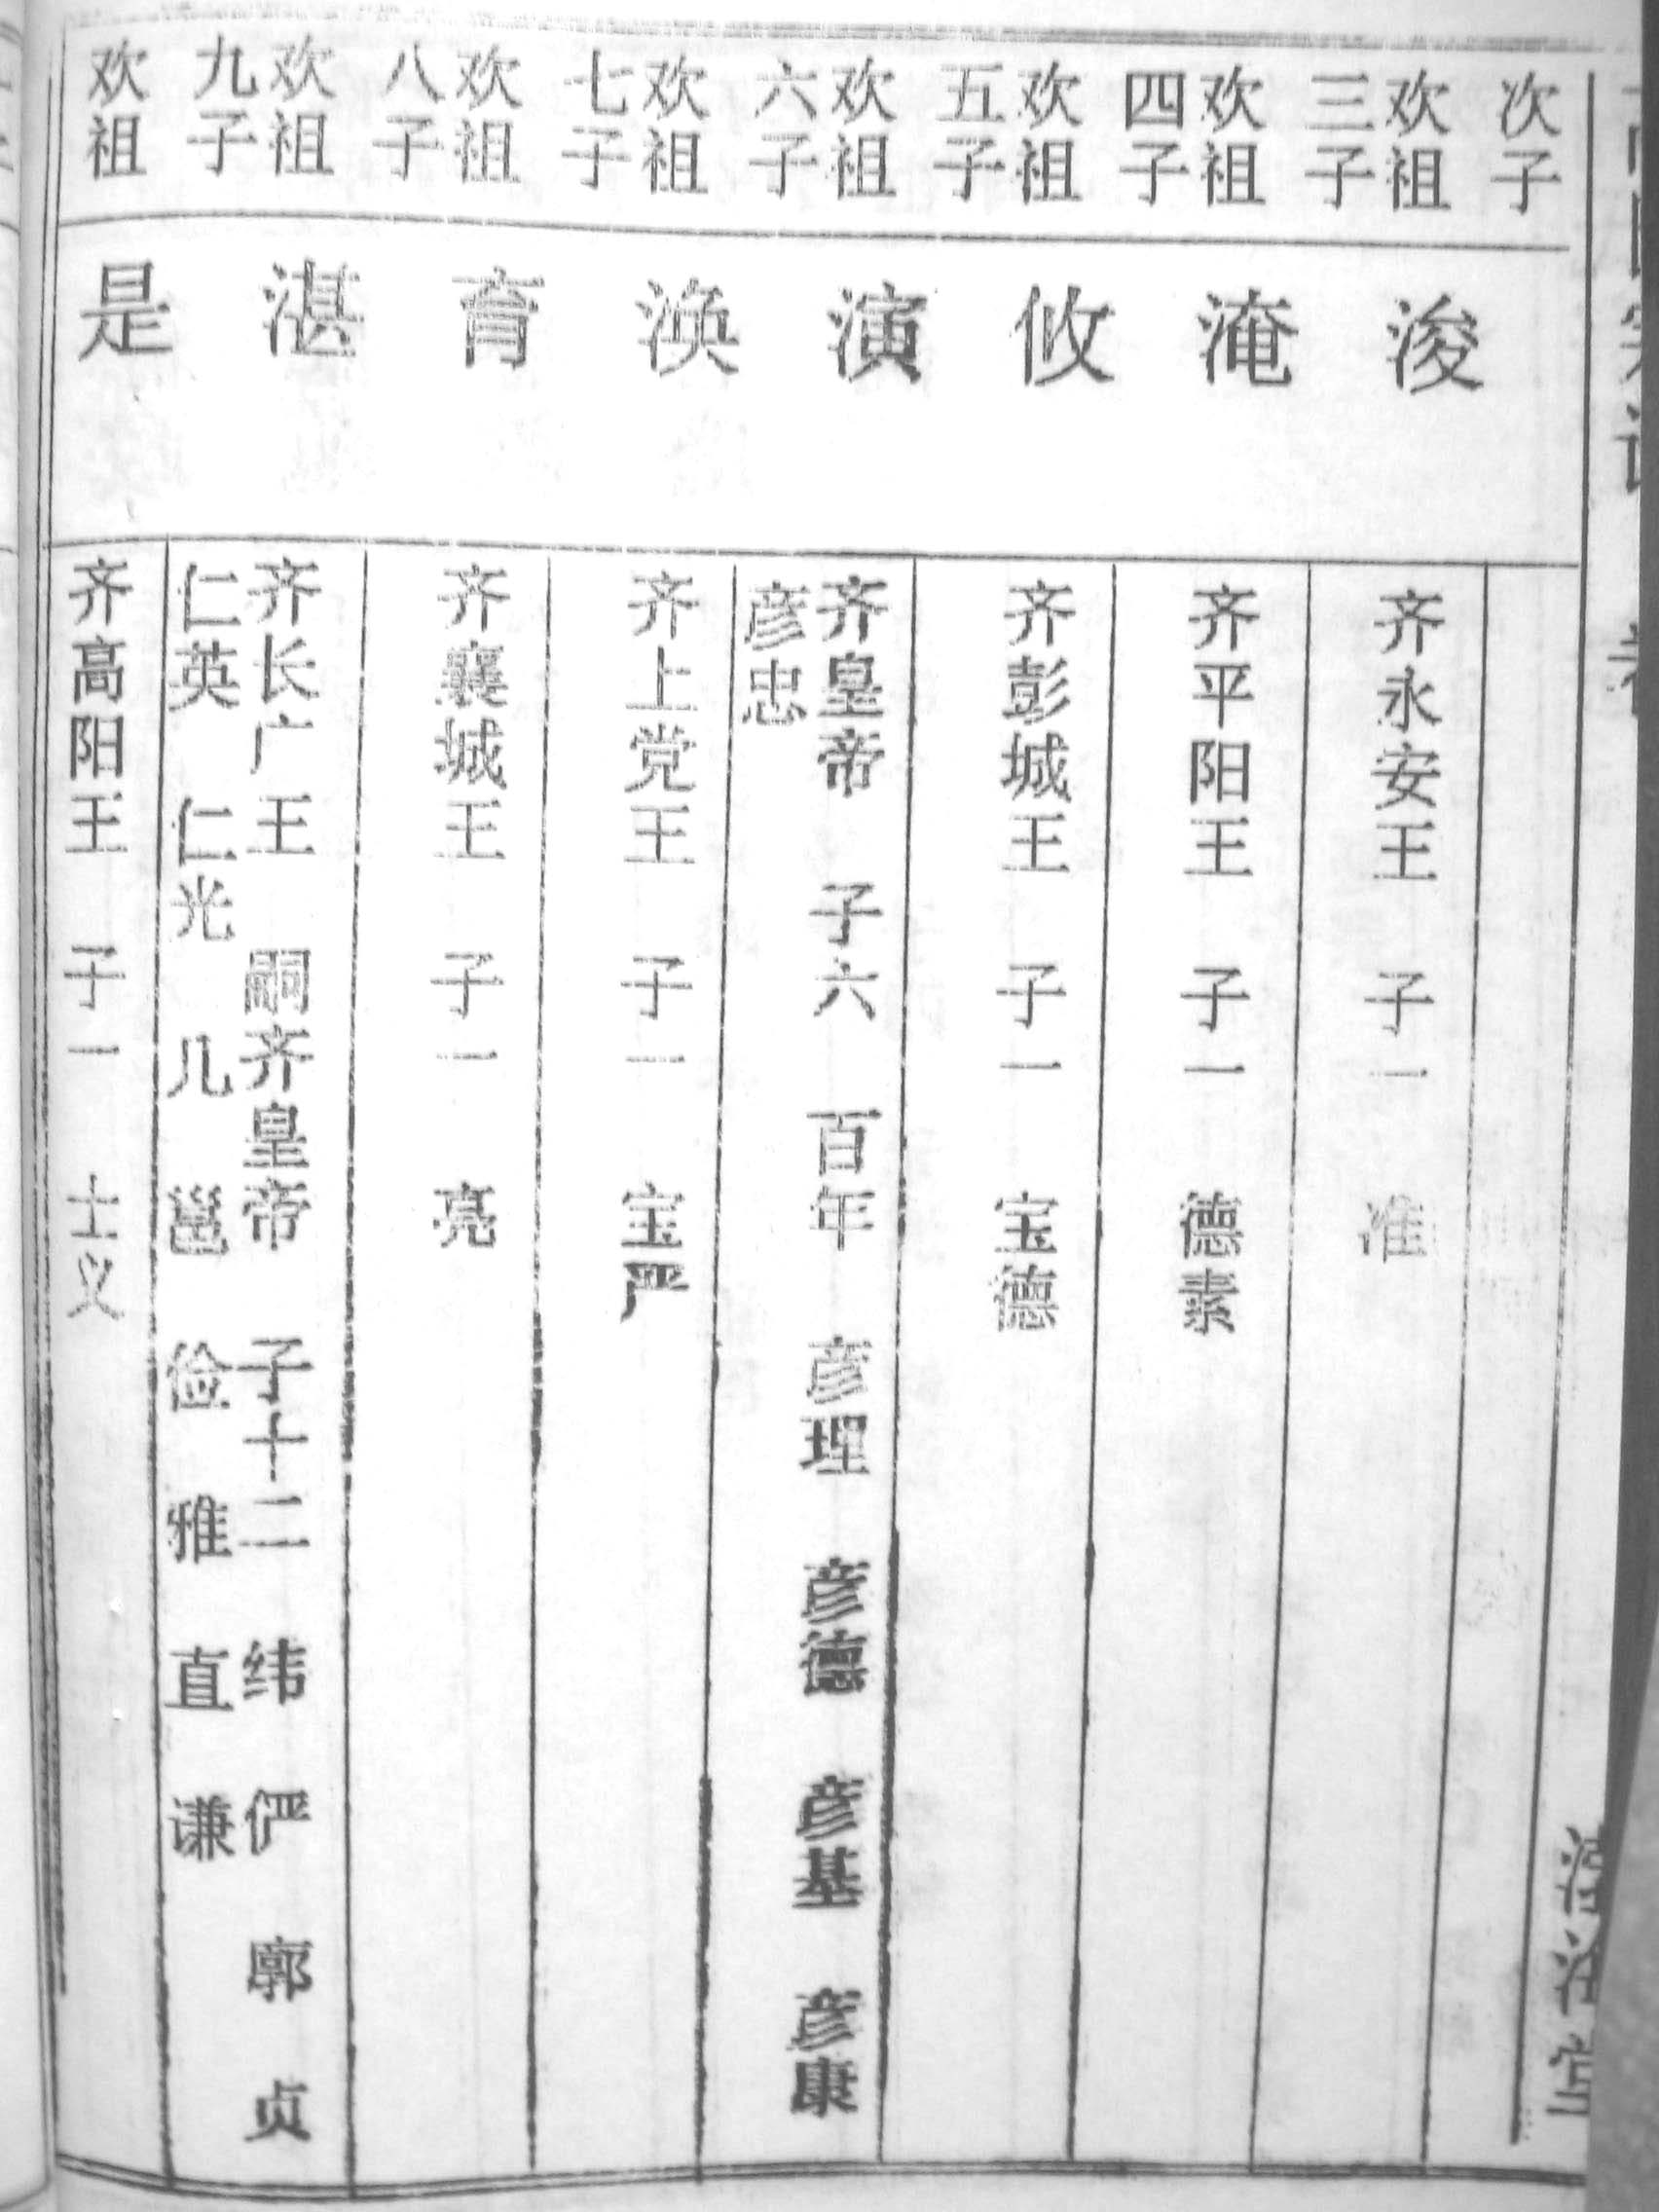 次子
欢祖
三子
浚
齐永安王 子一 准
欢祖
四子
淹
齐平阳王 子一 德素
欢祖
五子
攸
齐彭城王 子一 宝德
欢祖
六子
演
齐皇帝 子六 百年 彦理 彦德 彦基 彦康
彦忠
欢祖
七子
涣
齐上党王 子一 宝严
欢祖
八子
育
齐襄城王 子一 亮
欢祖
九子
湛
齐长广王 嗣齐皇帝 子十二 纬 俨 廓 贞
仁英 仁光 几 邕 俭 雅 直 谦
欢祖
是
齐高阳王 子一 士义